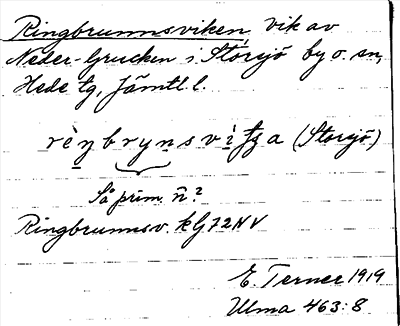 Ringbrunnsviken, vik av
Neder-Grucken i Storsjö by o. sn,
Hede tg, Jämtl. l.
rèŋbrynsvìʈʂa (Storsjö)
Så prim. n̄?
Ringbrunnsv. kG72NV
E. Ternee 1919
Ulma 463:8